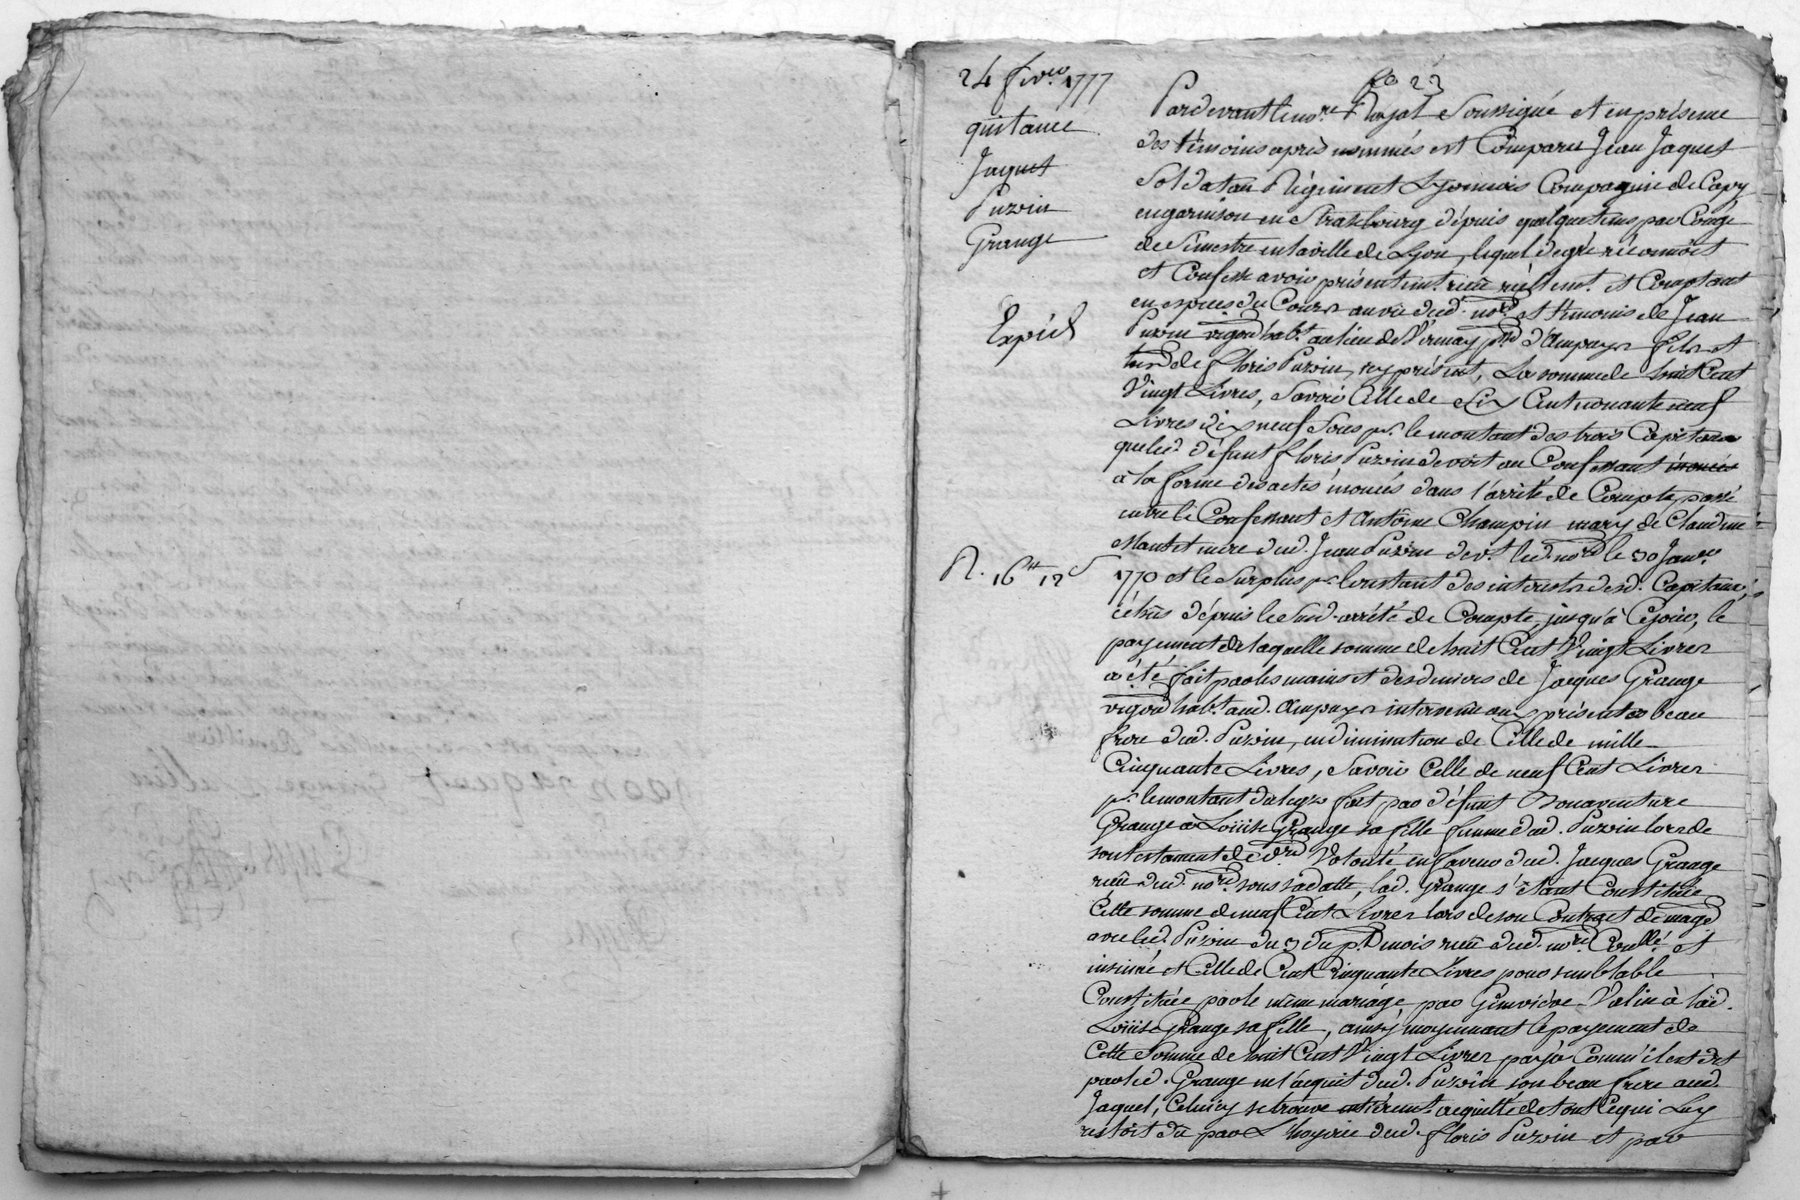 24 fevrier 1777
quitance
Jaquet
Puzin
Grange
Expié
R. 16ᵗᵗ 12 s
fo 23
Pardevant le nore Royal Soussigné et en présence
des témoins après nommés est Comparu Jean Jaquet
Soldat au Régiment Lyonnois Compagnie de Capy
en garnison en Strasbourg dépuis quelque tems par Congé
de Semestre en la ville de Lyon, lequel de gré réconnoit
et Confesse avoir présentemt. reçu réellemt. et Comptant
en espèces du Cours au vû dud. nore et témoins de Jean
Puzin vigon habt. au lieu de Vernay psse d'Ampuys fils et
de Floris Puzin, icy présent, La somme de huit Cent
Vingt Livres, Savoir Celle de Six Cent nonante neuf
Livres dix neuf Sous pr. le montant des trois Capitaux
que led. défunt Floris Puzin devoit au Confessant
à la forme des actes énoncés dans l'arrêté de Compte passé
entre le Confessant et Antoine Champin mary de Claudine
mere dud. Jean Puzin devt. led. nore le 30 Janvr.
1770 et le Surplus pr. le restant des interests desd. Capitaux,
échus dépuis le Susd. arrété de Compte, jusqu'à Cejour, le
payement de laquelle somme de huit Cent Vingt Livres
a été fait par les mains et des deniers de Jacques Grange
vigon habt. aud. Ampuys intervenu aux présentes beau
frere dud. Puzin, en diminution de Celle de mille
Cinquante Livres, Savoir Celle de neuf Cent Livres
pr. le montant du legs fait par défunt Bonaventure
Grange à Loüise Grange sa fille femme dud. Puzin lors de
son testament de dre Volonté en faveur dud. Jacques Grange
reçu dud. nore sous sa datte, lad. Grange s'étant Constituée
Cette somme de neuf Cent Livres lors de son Contract de mage
avec led. Puzin du 3 du pt. mois reçu dud. nore Conllé. et
insinué et Celle de Cent Cinquante Livres pour semblable
Constituée par le même mariage par Geneviève Valin à lad.
Loüise Grange sa fille, ainsy moyennant le payement de
Cette Somme de huit Cent Vingt Livres payée Comm'il est dit
par led. Grange en l'acquit dud. Puzin son beau frere aud.
Jaquet, Celuicy se trouve entiérent. acquitté de tout Cequi Luy
restoit dû par L'hoyrie dud. Floris Puzin et par